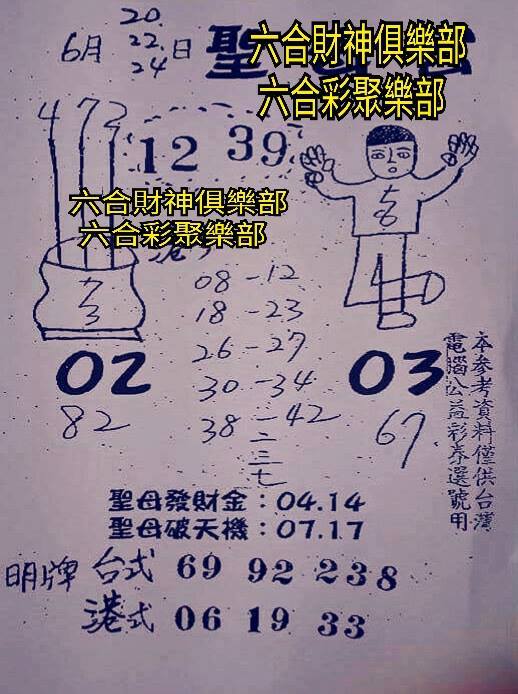 6月 20. 22. 24 日
聖
六合財神俱樂部
六合彩聚樂部
4 7 2
12 39
六合財神俱樂部
六合彩聚樂部
港
08-12
18-23
26-27
30-34
38-42
二
三
七
02
82
03
67
本參考資料僅供台灣
電腦公益彩券選號用
聖母發財金：04.14
聖母破天機：07.17
明牌 台式 69 92 238
港式 06 19 33